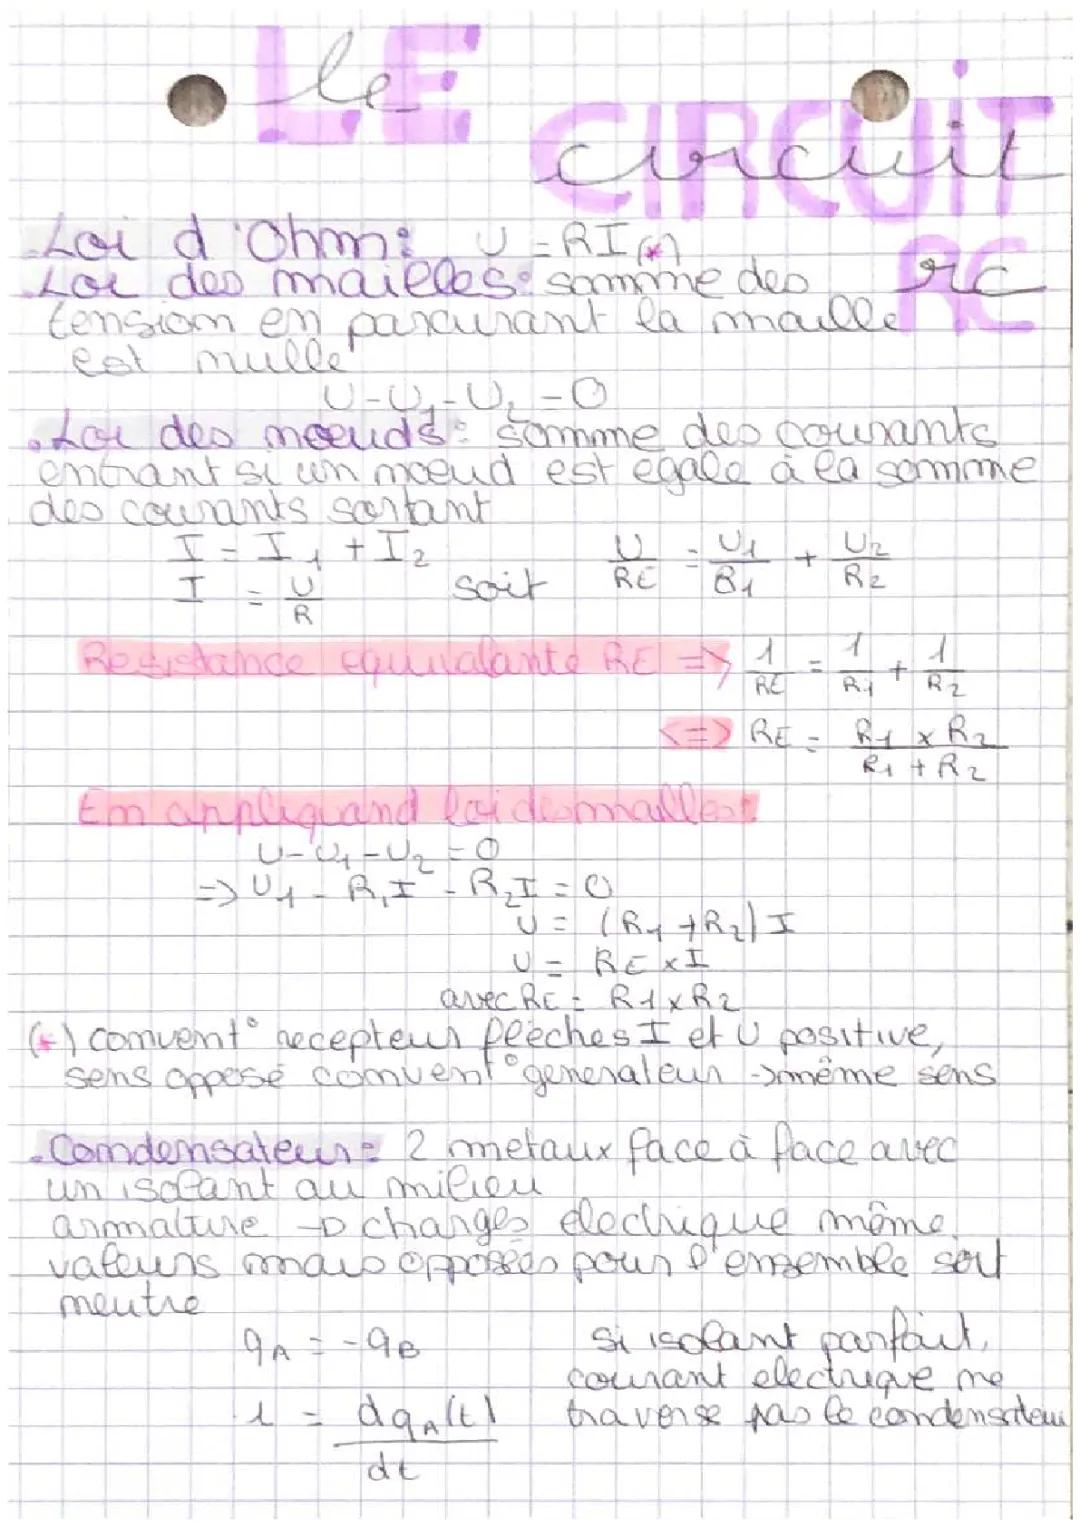 LE le
CIRCUIT circuit
RC rc
Loi d'Ohm: U = RI (*)
Loi des mailles: somme des
tension en parcurant la maille
est nulle
U-U1-U2 = 0
. Loi des nœuds: somme des courants
entrant si un nœud est egale à la somme
des courants sortant
I = I1 + I2
I = U/R soit U/RE = U1/R1 + U2/R2
Resistance equivalante RE => 1/RE = 1/R1 + 1/R2
<=> RE = R1 x R2 / R1 + R2
En appliquand loi des mailles:
U-U1-U2 = 0
=> U1 - R1I - R2I = 0
U = (R1 + R2) I
U = RE x I
avec RE = R1 x R2
(*) convent° recepteur fleèches I et U positive,
sens opposé convent° generateur -> même sens
. Condensateur: 2 metaux face à face avec
un isolant au milieu
armature -> charges electrique même
valeurs mais opposées pour l'ensemble soit
neutre
qA = -qB si isolant parfait,
courant electrique ne
i = dqA(t)/dt traverse pas le condensateur